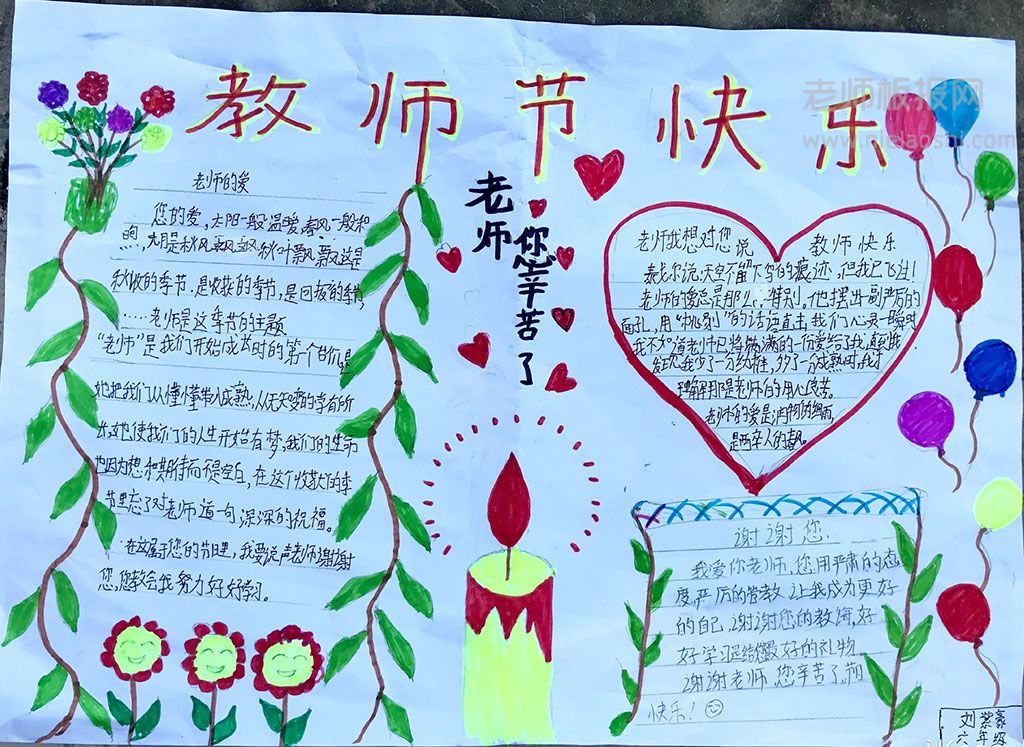 教师节快乐
老师板报网
老师
您辛苦了
老师的爱
您的爱,太阳一般温暖,春风一般和
秋收的季节.是收获的季节,是回报的季节,
……老师是这季节的主题
"老师"是我们开始成长时的第一个
她把我们从懵懂带入成熟,从无知变的学有所
出,她使我们的人生开始有梦,我们的生命
也因为想和期待而不是空白,在这个收获的季
节里忘了对老师道一句深深的祝福。
在这属于您的节日里,我要说声老师谢谢
您,您教会我努力好好学习。
老师我想对您说
教师快乐
泰戈尔说:天空不留下鸟的痕迹,但我已飞过!
老师的爱总是那么特别,他摆出副严厉的
面孔,用"挑剔"的话语直击我们心灵一瞬时
我不知道老师已将满满的一份爱给了我,直到我
发现我少了一分幼稚,多了一分成熟时,我才
理解那是老师的用心良苦。
老师的爱是润物的细雨,
是
谢谢您
我爱你老师,您用严肃的态
度,严厉的管教,让我成为更好
的自己,谢谢您的教诲,好
好学习是给您最好的礼物
谢谢老师,您辛苦了,节日
快乐!
刘紫
六年级